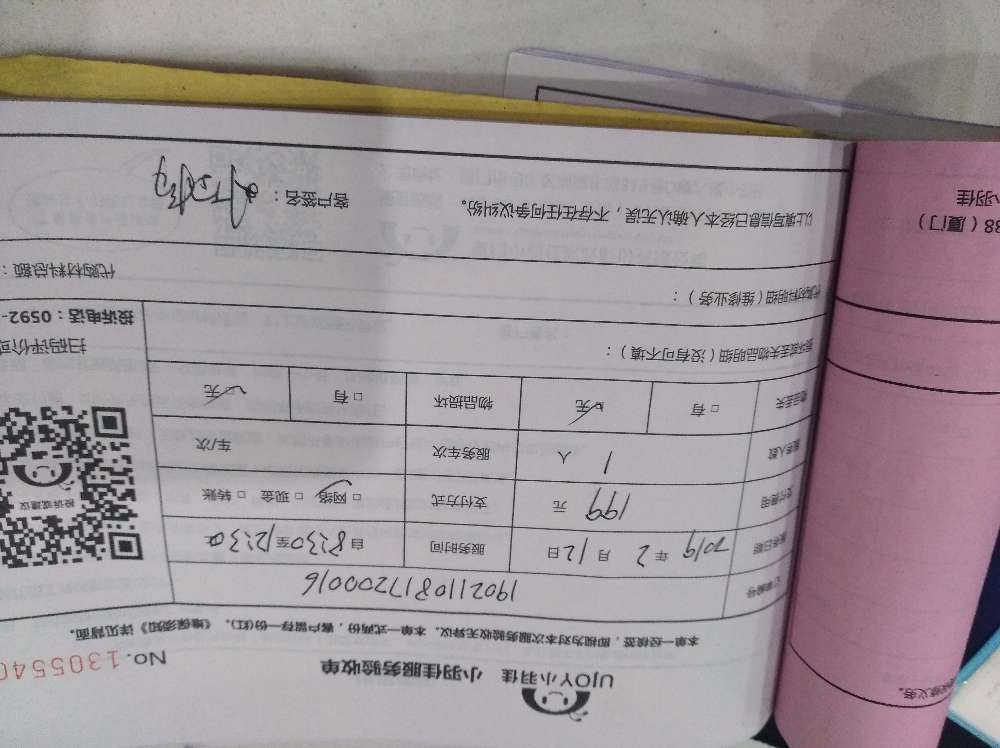 UJOY小羽佳 小羽佳服务验收单
No.1305540
本单一经核签，即视为对本次服务验收无异议。本单一式两份，客户留存一份(红)。《维保须知》详见背面。
订单编号 1902110817200016
服务日期 2019 年 2 月 12 日 服务时间 自 8:30 至 12:30
支付费用 199 元 支付方式 □ 网络 □ 现金 □ 转账
服务人数 1 人 服务车次 车/次
物品丢失 □ 有 □ 无 物品损坏 □ 有 □ 无
投诉或建议
扫码评价或
投诉电话：0592-
损坏或丢失物品明细（没有可不填）：
代购材料明细（维修业务）：
代购材料总额：
以上填写信息已经本人确认无误，不存在任何争议纠纷。
客户签名：
38（厦门）
小羽佳